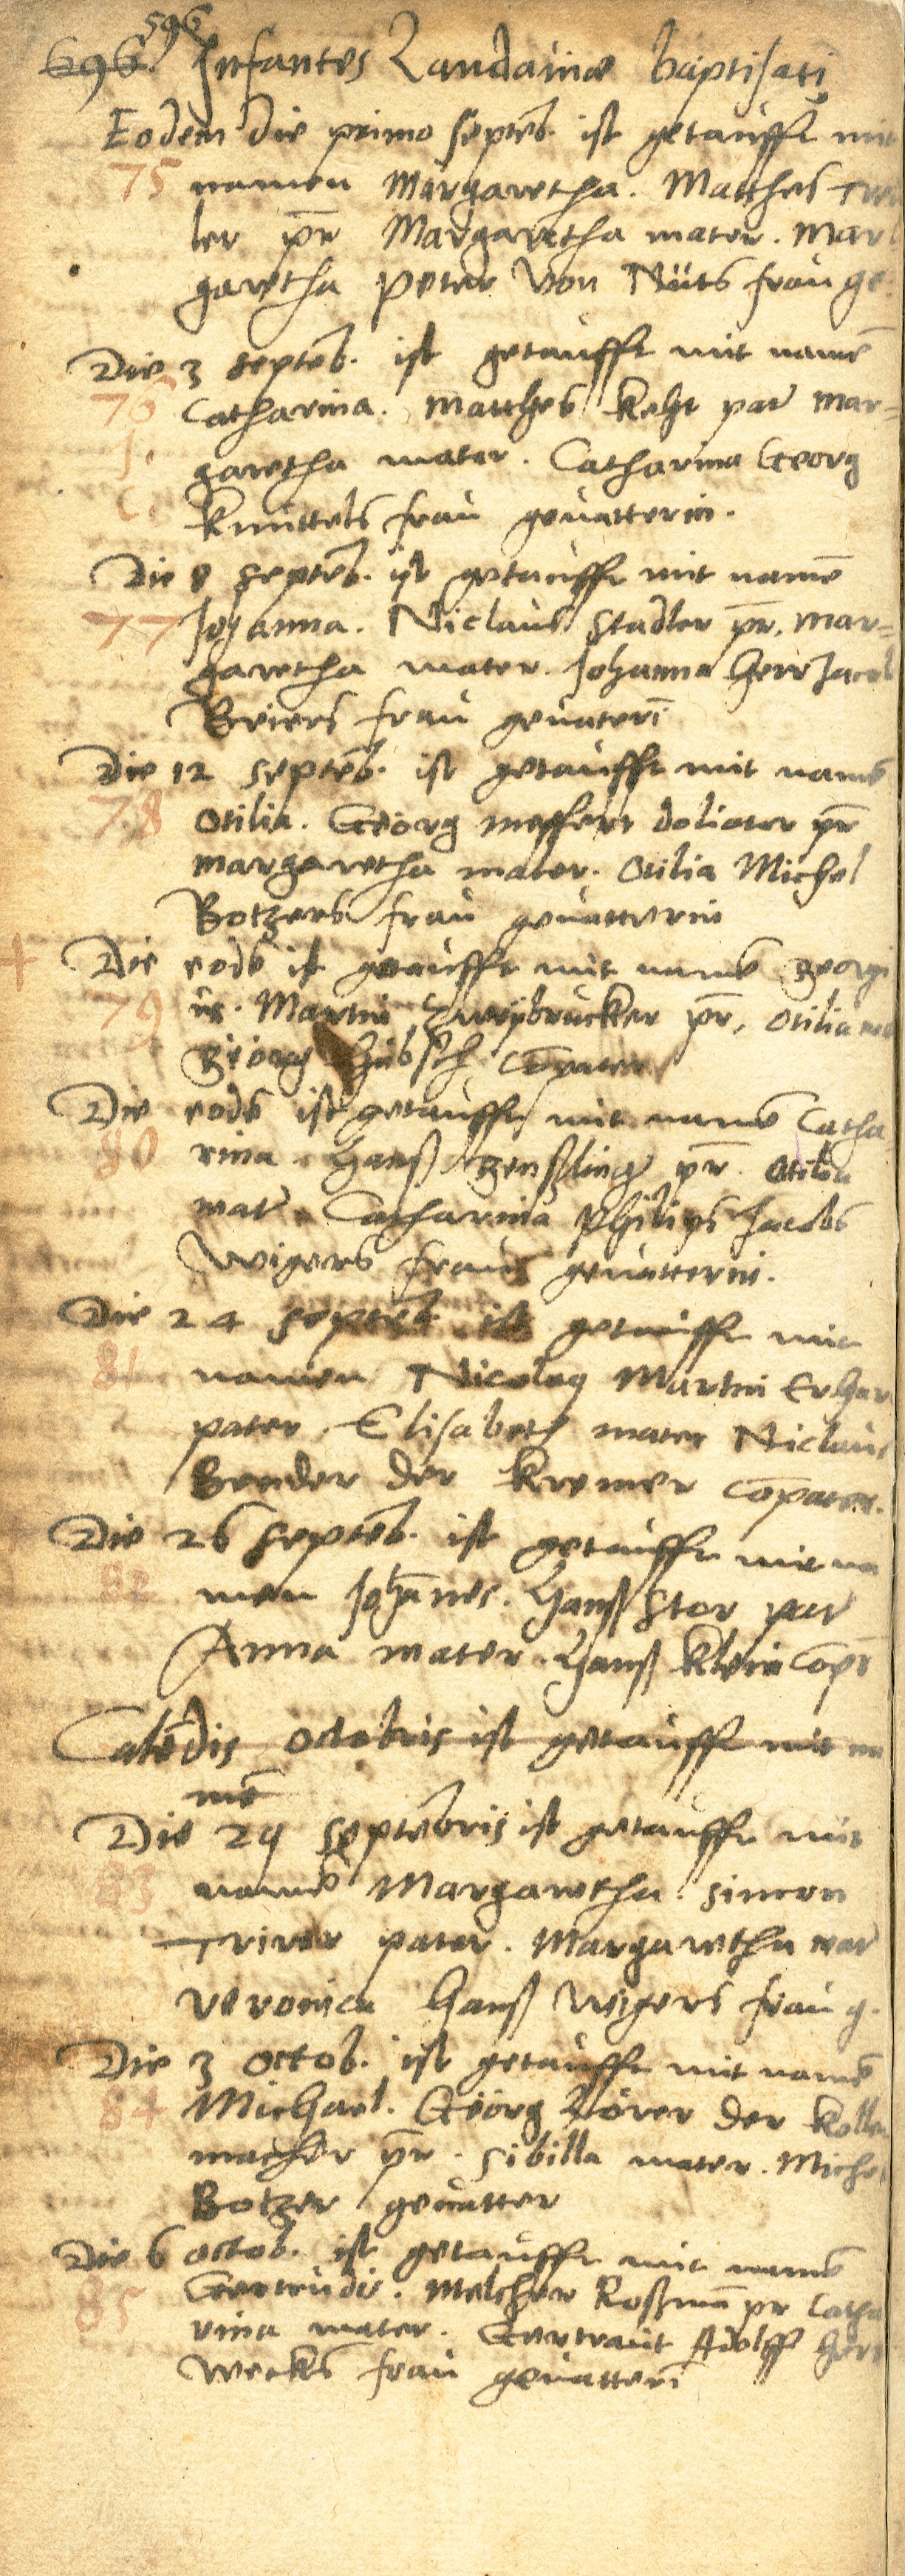 696. 596
Infantes Landauiæ baptisati
Eodem die primo septēb. ist getaufft mit
75 namen Margaretha. Matthes
ler pr̄ Margaretha mater. Mar
garetha Peter von Nüts frau ge.
Die 3 septēb. ist getaufft mit namē
76 Catharina. Matthes Keht pat Mar=
garetha mater. Catharina Georg
Knüttels frau geuatterin.
Die 8 septēb. ist getaufft mit namē
77 Johanna. Niclaus Stadler pr̄. Mar=
garetha mater. Johanna Herr Jacob
Beiers frau geuaterī
Die 12 septēb. ist getaufft mit namē
78 Otilia. Georg meffert doliator pr̄
Margaretha mater. Otilia Michel
Botzers frau geuatterin
Die eodē ist getaufft mit namē Georgi
79 us. Martin Zweybrucker pr̄, Otilia
Georg Hübsch cōpater
Die eodē ist getaufft mit namē Catha
80 rina. Hanß Genßling pr̄. Otilia
mat Catharina Philips Jacobs
Wigers frau geuatterin.
Die 24 septēb. ist getaufft mit
81 namen Nicolaq Martin Erhar
pater. Elisabeth mater Niclaus
Bender der Kremer Cōpater.
Die 26 septēb. ist getaufft mit na
82 men Johānes. Hanß Stor pat
Anna mater. Hanß Klein Cōpr̄
Calēdis octobris ist getaufft mit na
mē
Die 29 septēbris ist getaufft mit
83 namē Margaretha. Simon
Trirer pater. Margaretha mat
Veronica Hanß Wigers frau g.
Die 3 octob. ist getaufft mit namē
84 Michael. Georg Hörer der Kolle
macher pr̄. Sibilla mater. Michel
Botzer geuatter
Die 6 octob. ist getaufft mit namē
85 Gertrudis. Melcher Roßman pr Catha
rina mater. Gertraut Adolff Hert
wecks frau geuatterī